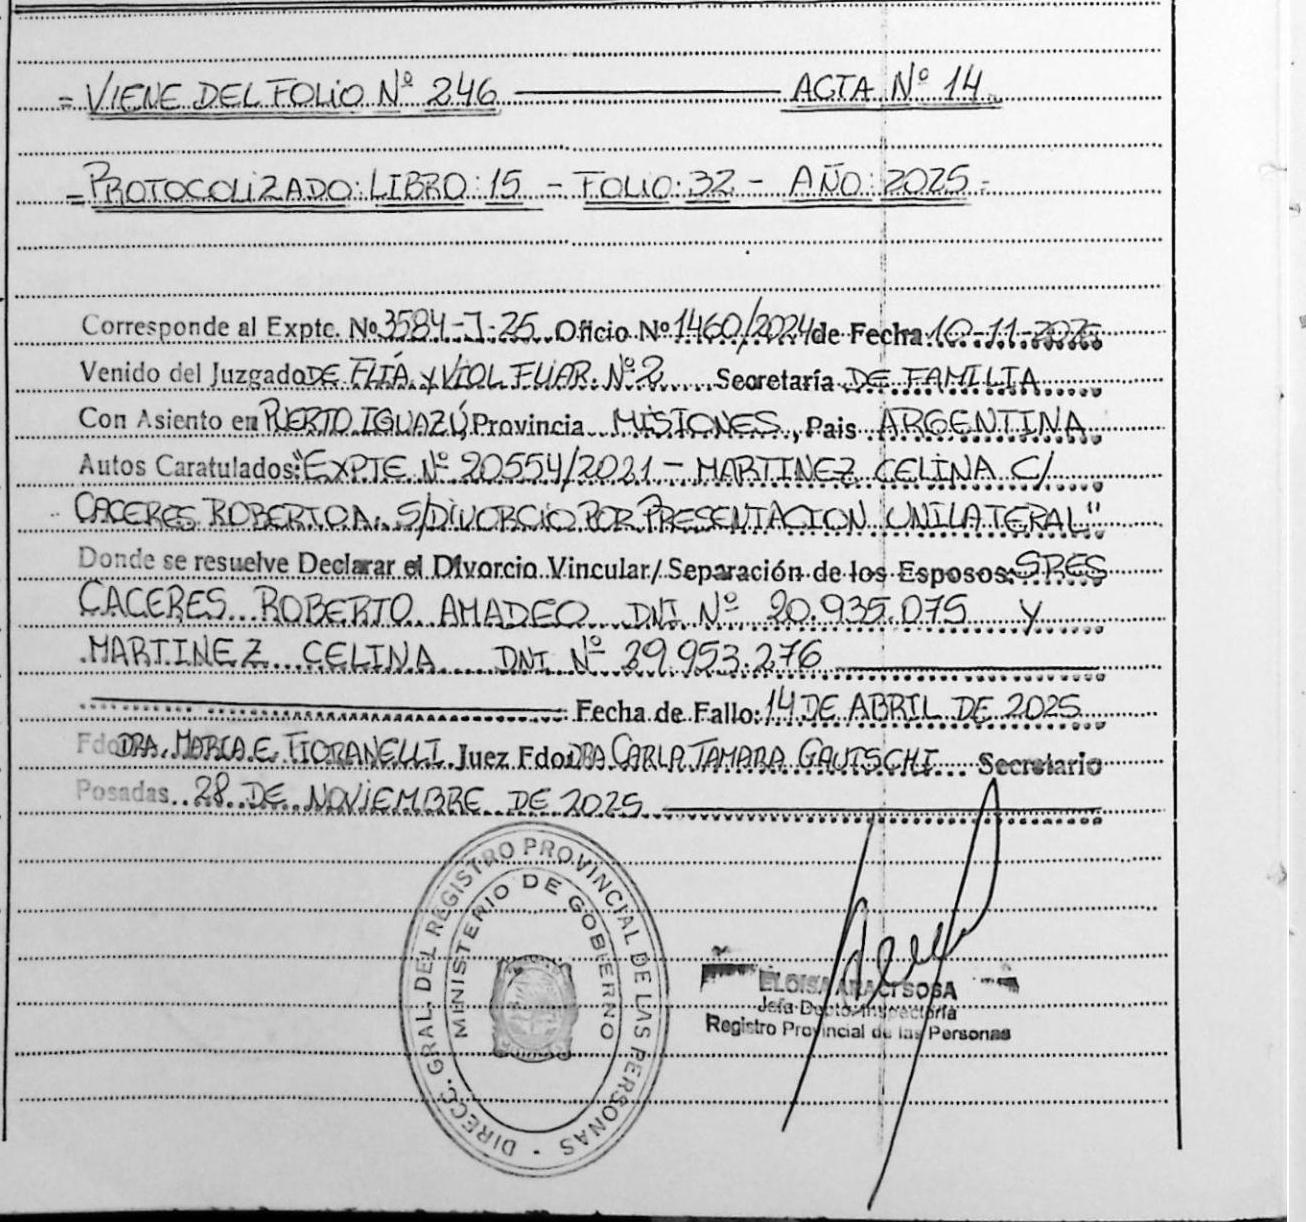 = VIENE DEL FOLIO Nº 246 ——— ACTA Nº 14
= PROTOCOLIZADO: LIBRO: 15 - FOLIO: 32 - AÑO: 2025 =
Corresponde al Expte. Nº 3584-J-25 Oficio Nº 1460/2024 de Fecha 10-11-2025
Venido del Juzgado DE FLIÁ. y VIOL FLIAR. Nº 2 Secretaría DE FAMILIA
Con Asiento en PUERTO IGUAZÚ Provincia MISIONES, Pais ARGENTINA
Autos Caratulados: "EXPTE Nº 20554/2021 - MARTINEZ CELINA C/
CACERES ROBERTO A. S/DIVORCIO POR PRESENTACION UNILATERAL"
Donde se resuelve Declarar el Divorcio Vincular/Separación de los Esposos: SRES
CACERES ROBERTO AMADEO DNI Nº 20.935.075 Y
MARTINEZ CELINA DNI Nº 29.953.276
Fecha de Fallo: 14 DE ABRIL DE 2025
Fdo DRA. MARIA E. FIORANELLI Juez Fdo DRA CARLA TAMARA GAUTSCHI Secretario
Posadas 28 DE NOVIEMBRE DE 2025
DIRECC. GRAL. DEL REGISTRO PROVINCIAL DE LAS PERSONAS
MINISTERIO DE GOBIERNO
ELOISA ARACI SOSA
Jefa Depto. Inspectoría
Registro Provincial de las Personas